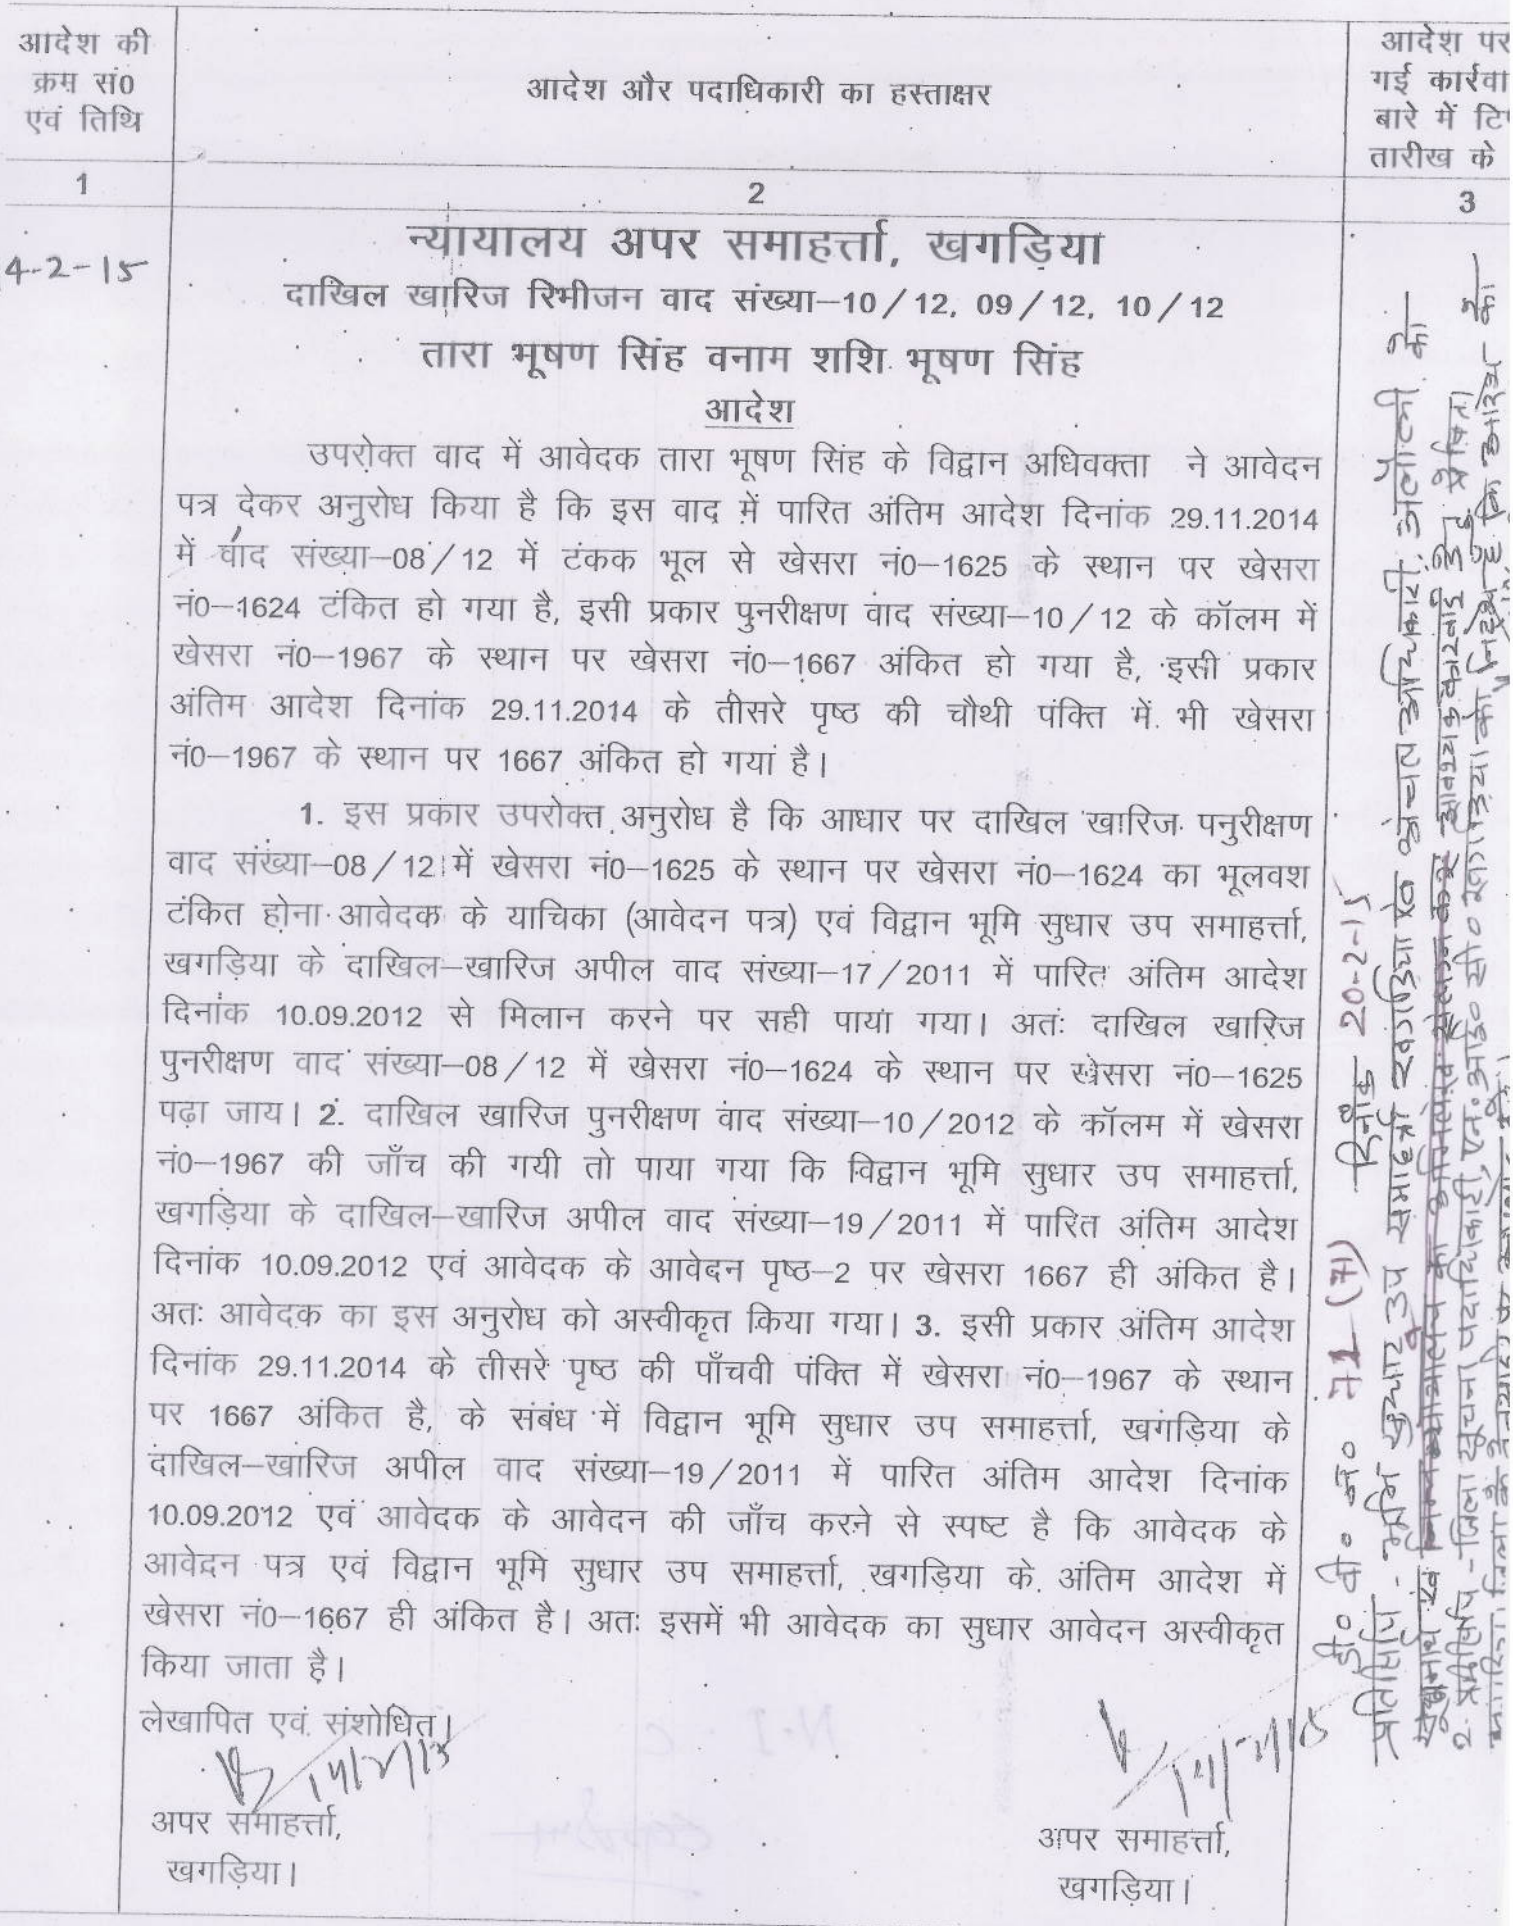 आदेश की
क्रम सं0
एवं तिथि
आदेश और पदाधिकारी का हस्ताक्षर
आदेश पर
गई कार्रवा
बारे में टि
तारीख के
1
2
3
4-2-15
न्यायालय अपर समाहर्त्ता, खगड़िया
दाखिल खारिज रिभीजन वाद संख्या–10/12, 09/12, 10/12
तारा भूषण सिंह वनाम शशि भूषण सिंह
आदेश
उपरोक्त वाद में आवेदक तारा भूषण सिंह के विद्वान अधिवक्ता ने आवेदन
पत्र देकर अनुरोध किया है कि इस वाद में पारित अंतिम आदेश दिनांक 29.11.2014
में वाद संख्या–08/12 में टंकक भूल से खेसरा नं0–1625 के स्थान पर खेसरा
नं0–1624 टंकित हो गया है, इसी प्रकार पुनरीक्षण वाद संख्या–10/12 के कॉलम में
खेसरा नं0–1967 के स्थान पर खेसरा नं0–1667 अंकित हो गया है, इसी प्रकार
अंतिम आदेश दिनांक 29.11.2014 के तीसरे पृष्ठ की चौथी पंक्ति में भी खेसरा
नं0–1967 के स्थान पर 1667 अंकित हो गया है।
1. इस प्रकार उपरोक्त अनुरोध है कि आधार पर दाखिल खारिज पनुरीक्षण
वाद संख्या–08/12 में खेसरा नं0–1625 के स्थान पर खेसरा नं0–1624 का भूलवश
टंकित होना आवेदक के याचिका (आवेदन पत्र) एवं विद्वान भूमि सुधार उप समाहर्त्ता,
खगड़िया के दाखिल–खारिज अपील वाद संख्या–17/2011 में पारित अंतिम आदेश
दिनांक 10.09.2012 से मिलान करने पर सही पाया गया। अतः दाखिल खारिज
पुनरीक्षण वाद संख्या–08/12 में खेसरा नं0–1624 के स्थान पर खेसरा नं0–1625
पढ़ा जाय। 2. दाखिल खारिज पुनरीक्षण वाद संख्या–10/2012 के कॉलम में खेसरा
नं0–1967 की जाँच की गयी तो पाया गया कि विद्वान भूमि सुधार उप समाहर्त्ता,
खगड़िया के दाखिल–खारिज अपील वाद संख्या–19/2011 में पारित अंतिम आदेश
दिनांक 10.09.2012 एवं आवेदक के आवेदन पृष्ठ–2 पर खेसरा 1667 ही अंकित है।
अतः आवेदक का इस अनुरोध को अस्वीकृत किया गया। 3. इसी प्रकार अंतिम आदेश
दिनांक 29.11.2014 के तीसरे पृष्ठ की पाँचवी पंक्ति में खेसरा नं0–1967 के स्थान
पर 1667 अंकित है, के संबंध में विद्वान भूमि सुधार उप समाहर्त्ता, खगड़िया के
दाखिल–खारिज अपील वाद संख्या–19/2011 में पारित अंतिम आदेश दिनांक
10.09.2012 एवं आवेदक के आवेदन की जाँच करने से स्पष्ट है कि आवेदक के
आवेदन पत्र एवं विद्वान भूमि सुधार उप समाहर्त्ता, खगड़िया के अंतिम आदेश में
खेसरा नं0–1667 ही अंकित है। अतः इसमें भी आवेदक का सुधार आवेदन अस्वीकृत
किया जाता है।
लेखापित एवं संशोधित।
अपर समाहर्त्ता,
खगड़िया।
अपर समाहर्त्ता,
खगड़िया।
डी० बी० नं० 71 (रा) दिनांक 20-2-15
प्रतिलिपि - भूमि सुधार उप समाहर्त्ता खगड़िया एवं अंचल अधिकारी, अलौली को
सूचनार्थ एवं आवश्यक कारवाई हेतु प्रेषित।
2. प्रतिलिपि - जिला सूचना पदाधिकारी, एन० आई० सी० खगड़िया को